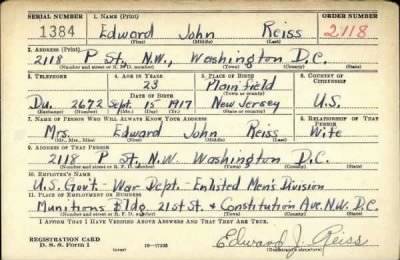 SERIAL NUMBER 1. NAME (Print) ORDER NUMBER
1384 Edward John Reiss 2118
(First) (Middle) (Last)
2. ADDRESS (Print)
2118 P St., N.W., Washington D.C.
(Number and street or R. F. D. number) (Town) (County) (State)
3. TELEPHONE 4. AGE IN YEARS 5. PLACE OF BIRTH 6. COUNTRY OF CITIZENSHIP
23 Plainfield
DATE OF BIRTH (Town or county)
Du. 2672 Sept. 15 1917 New Jersey U.S.
(Exchange) (Number) (Mo.) (Day) (Yr.) (State or country)
7. NAME OF PERSON WHO WILL ALWAYS KNOW YOUR ADDRESS 8. RELATIONSHIP OF THAT PERSON
Mrs. Edward John Reiss Wife
(Mr., Mrs., Miss) (First) (Middle) (Last)
9. ADDRESS OF THAT PERSON
2118 P St. N.W. Washington D.C.
(Number and street or R. F. D. number) (Town) (County) (State)
10. EMPLOYER'S NAME
U.S. Gov't - War Dept. - Enlisted Men's Division
11. PLACE OF EMPLOYMENT OR BUSINESS
Munitions Bldg. 21st St. & Constitution Ave. N.W. D.C.
(Number and street or R. F. D. number) (Town) (County) (State)
I AFFIRM THAT I HAVE VERIFIED ABOVE ANSWERS AND THAT THEY ARE TRUE.
REGISTRATION CARD
D. S. S. Form 1 16-17105 Edward J. Reiss
(over)